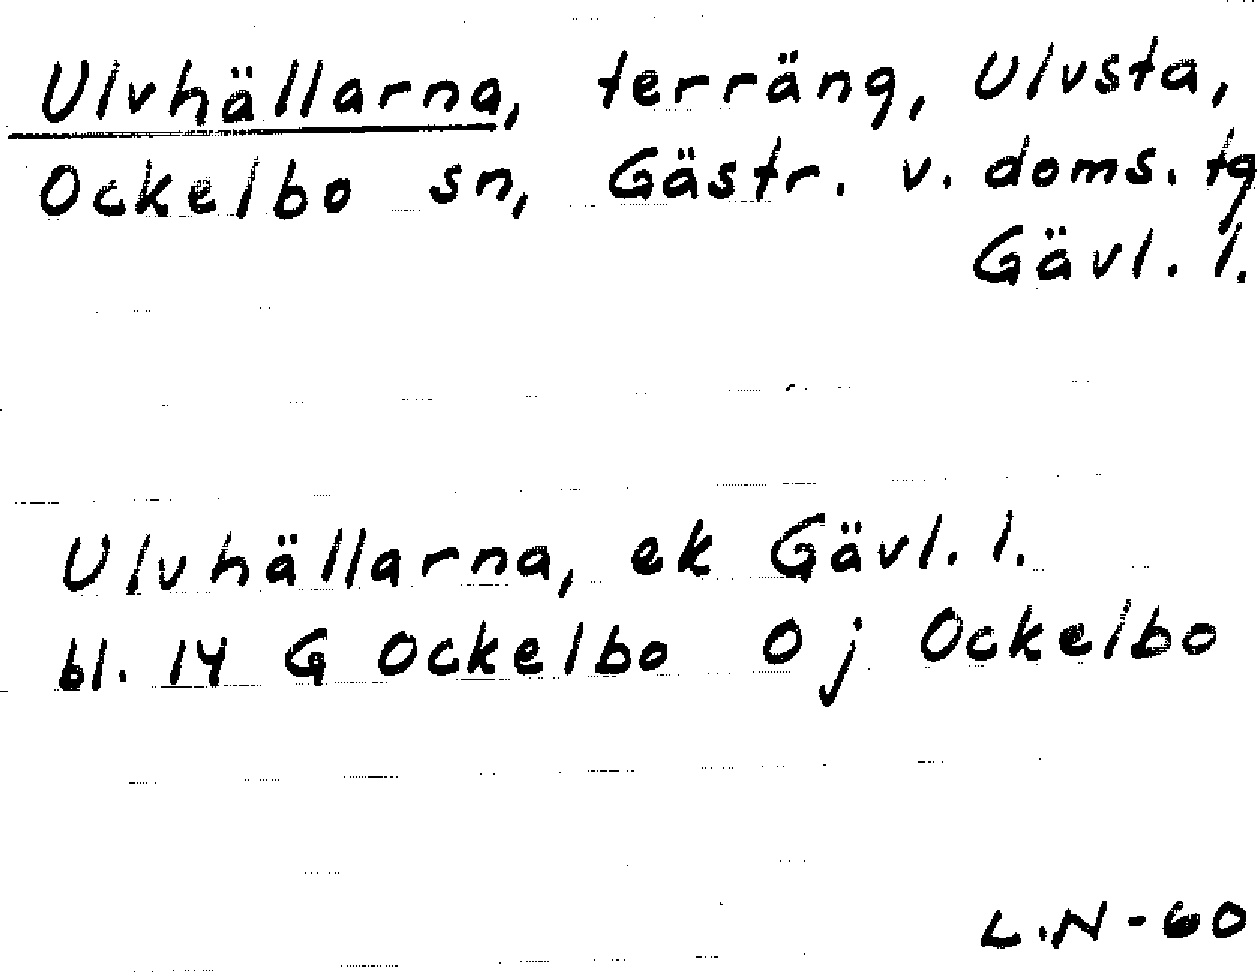 Ulvhällarna, terräng, Ulvsta,
Ockelbo sn, Gästr. v. doms. tg
Gävl. l.
Ulvhällarna, ek Gävl. l.
bl. 14 G Ockelbo O j Ockelbo
L.N-60